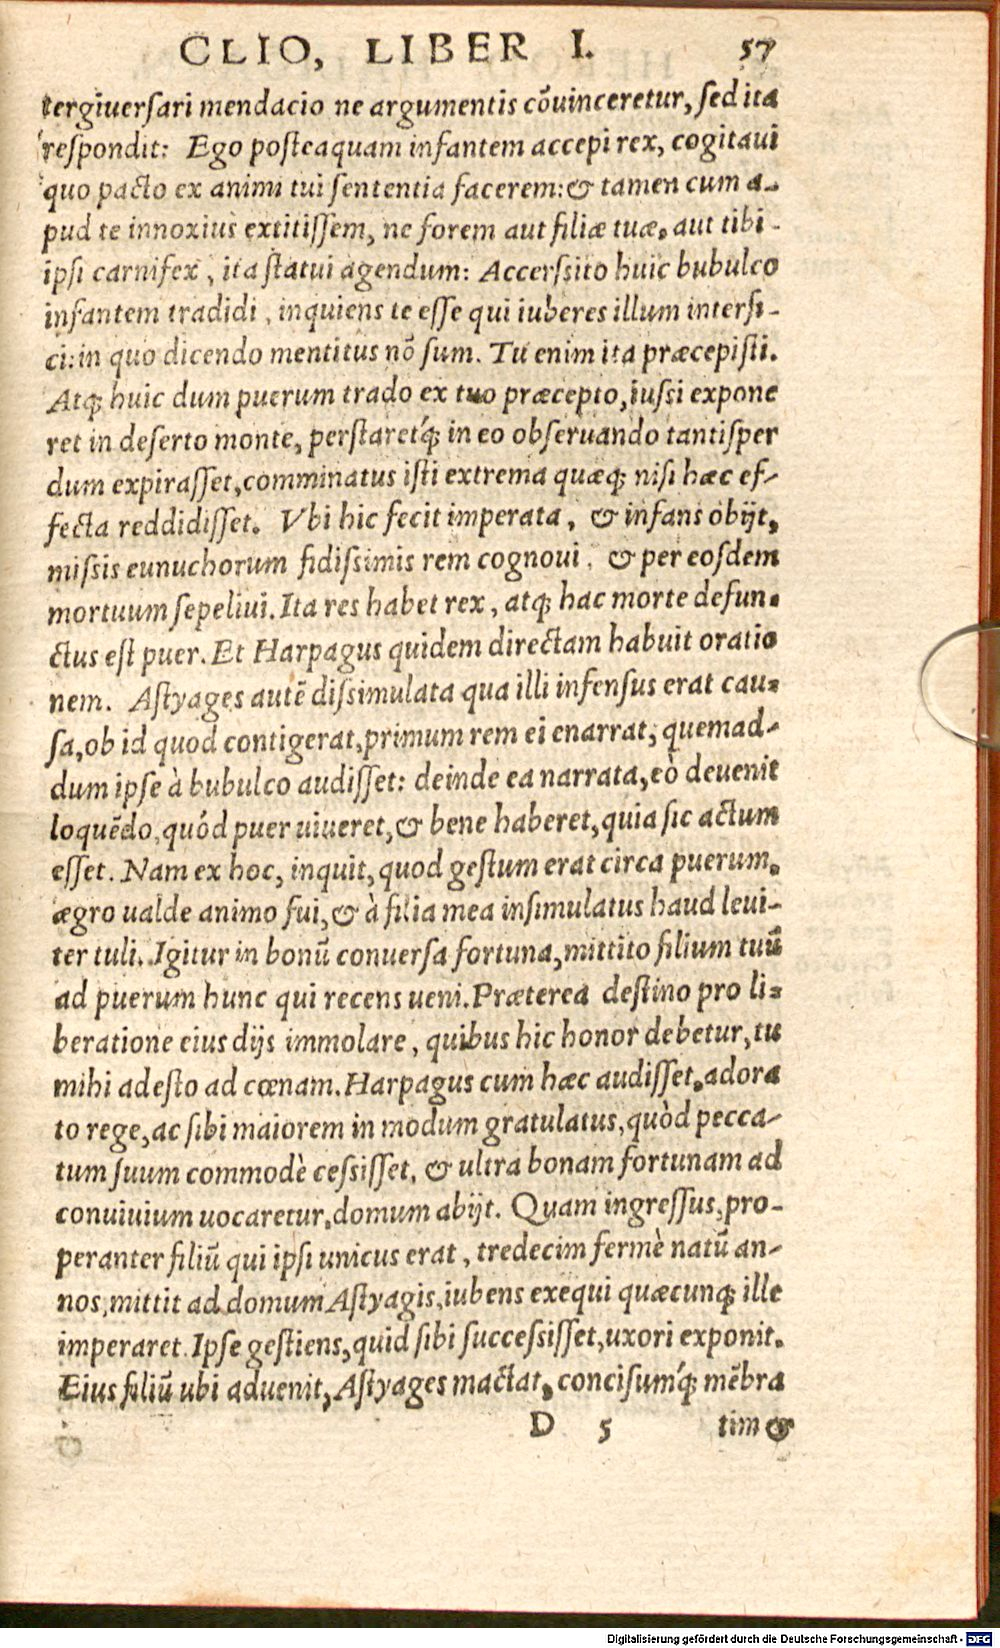 CLIO, LIBER I. 57
tergiuersari mendacio ne argumentis cõuinceretur, sed ita
respondit: Ego posteaquam infantem accepi rex, cogitaui
quo pacto ex animi tui sententia facerem: & tamen cum a-
pud te innoxius extitissem, ne forem aut filiæ tuæ, aut tibi-
ipsi carnifex, ita statui agendum: Accerssito huic bubulco
infantem tradidi, inquiens te esse qui iuberes illum interfi-
ci: in quo dicendo mentitus nõ sum. Tu enim ita præcepisti.
Atq; huic dum puerum trado ex tuo præcepto, iussi expone
ret in deserto monte, perstaretq́; in eo obseruando tantisper
dum expirasset, comminatus isti extrema quæq; nisi hæc ef-
fecta reddidisset. Vbi hic fecit imperata, & infans obijt,
missis eunuchorum fidissimis rem cognoui, & per eosdem
mortuum sepeliui. Ita res habet rex, atq; hac morte defun-
ctus est puer. Et Harpagus quidem directam habuit oratio
nem. Astyages autẽ dissimulata qua illi infensus erat cau-
sa, ob id quod contigerat, primum rem ei enarrat, quemad-
dum ipse à bubulco audisset: deinde ea narrata, eò deuenit
loquẽdo, quód puer uiueret, & bene haberet, quia sic actum
esset. Nam ex hoc, inquit, quod gestum erat circa puerum,
ægro ualde animo fui, & à filia mea insimulatus haud leui-
ter tuli. Igitur in bonũ conuersa fortuna, mittito filium tuũ
ad puerum hunc qui recens ueni. Præterea destino pro li-
beratione eius dijs immolare, quibus hic honor debetur, tu
mihi adesto ad cœnam. Harpagus cum hæc audisset, adora
to rege, ac sibi maiorem in modum gratulatus, quòd pecca-
tum suum commodè cessisset, & ultra bonam fortunam ad
conuiuium uocaretur, domum abijt. Quam ingressus, pro-
peranter filiũ qui ipsi unicus erat, tredecim fermè natũ an-
nos, mittit ad domum Astyagis, iubens exequi quæcunq; ille
imperaret. Ipse gestiens, quid sibi successisset, uxori exponit.
Eius filiũ ubi aduenit, Astyages mactat, concisumq́; mẽbra
D 5 tim &
Digitalisierung gefördert durch die Deutsche Forschungsgemeinschaft - DFG